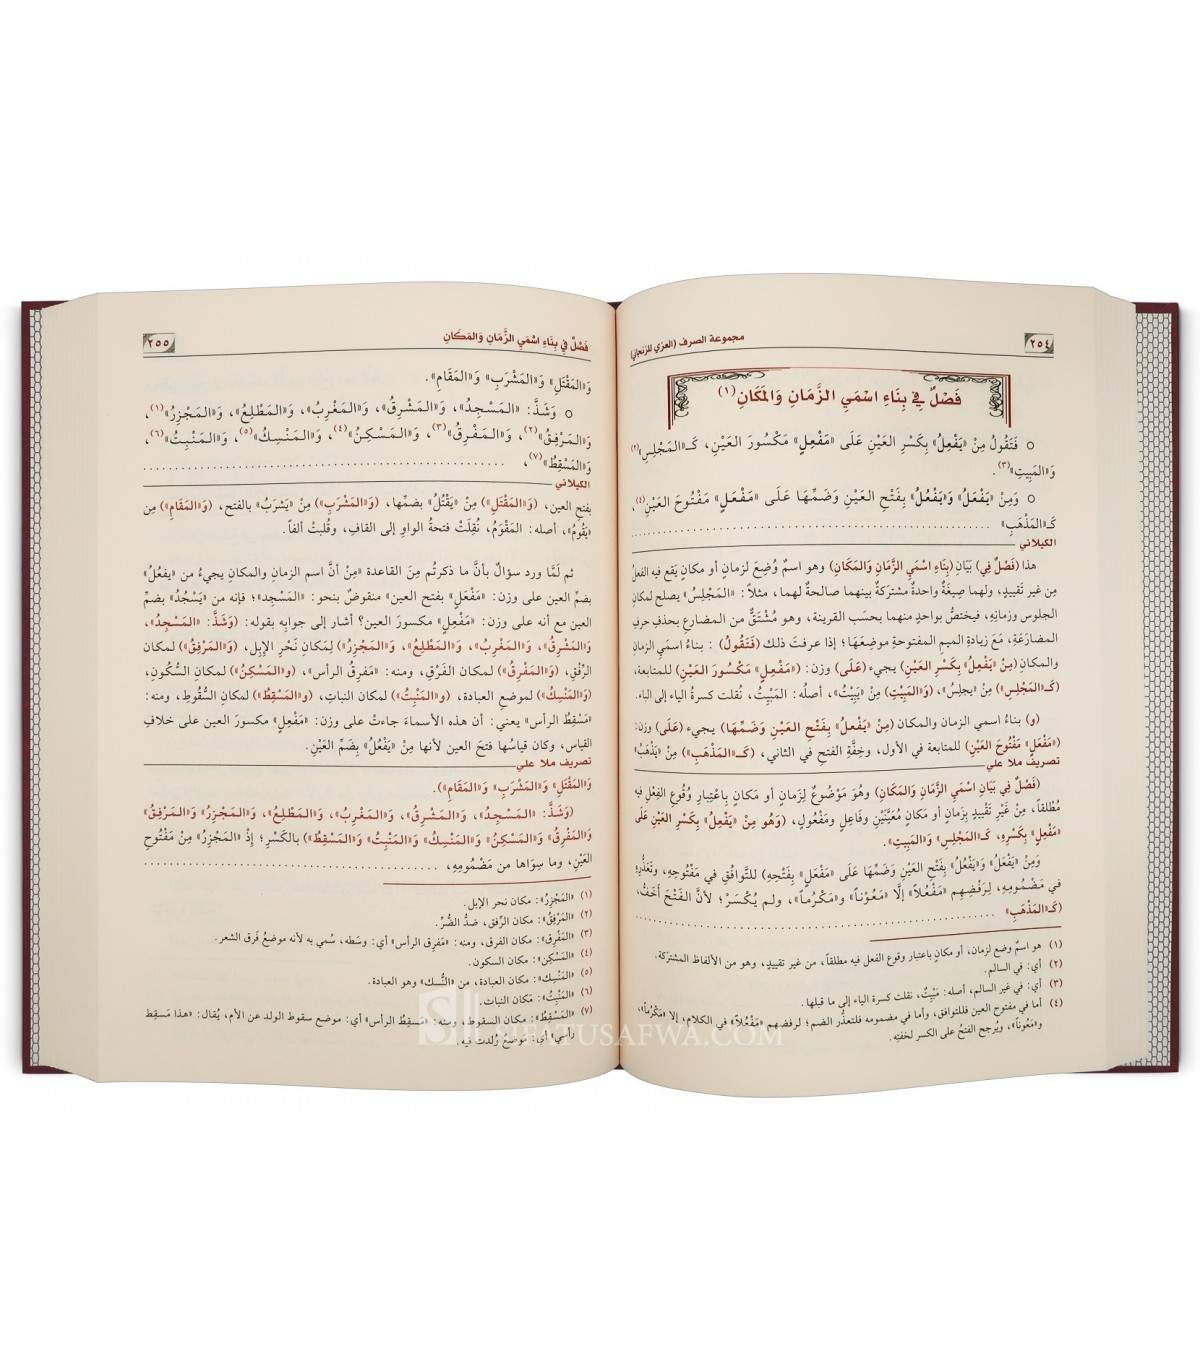 ٢٥٤
مجموعة الصرف (العزي للزنجاني)
فَصْلٌ فِي بِنَاءِ اسْمَيِ الزَّمَانِ وَالمَكَانِ (١)
○ فَتَقُولُ مِنْ «يَفْعِلُ» بِكَسْرِ العَيْنِ عَلَى «مَفْعِلٍ» مَكْسُورَ العَيْنِ، كَـ«المَجْلِسِ» (٢)
وَ«المَبِيتِ» (٣).
○ وَمِنْ «يَفْعَلُ» وَ«يَفْعُلُ» بِفَتْحِ العَيْنِ وَضَمِّهَا عَلَى «مَفْعَلٍ» مَفْتُوحَ العَيْنِ (٤)،
كَـ«المَذْهَبِ»
الكيلاني
هذا (فَصْلٌ فِي) بَيَانِ (بِنَاءِ اسْمَيِ الزَّمَانِ وَالمَكَانِ) وهو اسمٌ وُضِعَ لزمانٍ أو مكانٍ يَقع فيه الفعلُ
مِن غير تَقييدٍ، ولهما صِيغَةٌ واحدةٌ مشتركةٌ بينهما صالحةٌ لهما، مثلاً: «المَجْلِسُ» يصلح لمكانِ
الجلوس وزمانِهِ، فيختصُّ بواحدٍ منهما بحسَب القرينة، وهو مُشْتَقٌّ من المضارعِ بحذفِ حرفِ
المضارَعَةِ، مَعَ زيادةِ الميمِ المفتوحةِ موضِعَها؛ إذا عرفتَ ذلك (فَتَقُولُ) : بناءُ اسمَيِ الزمانِ
والمكانِ (مِنْ «يَفْعِلُ» بِكَسْرِ العَيْنِ) يجيء (عَلَى) وزن: («مَفْعِلٍ» مَكْسُورَ العَيْنِ) للمتابعة،
(كَـ«المَجْلِسِ») مِنْ «يجلِسُ»، (وَ«المَبِيتِ») مِنْ «يَبِيْتُ»، أصلُه: المَبْيِتُ، نُقلت كسرة الياء إلى الباء.
(و) بناءُ اسمي الزمان والمكان (مِنْ «يَفْعَلُ» بِفَتْحِ العَيْنِ وَضَمِّهَا) يجيء (عَلَى) وزن:
(«مَفْعَلٍ» مَفْتُوحَ العَيْنِ) للمتابعة في الأول، وخِفَّةِ الفتح في الثاني، (كَـ«المَذْهَبِ») مِنْ «يَذْهَبُ»
تصريف ملا علي
(فَصْلٌ فِي بَيَانِ اسْمَيِ الزَّمَانِ وَالمَكَانِ) وهُوَ مَوْضُوعٌ لِزَمانٍ أو مَكانٍ بِاعْتِبارِ وُقُوعِ الفِعْلِ فيه
مُطْلَقاً، مِنْ غَيْرِ تَقْيِيدٍ بِزَمانٍ أو مَكانٍ مُعَيَّنَيْنِ وفَاعِلٍ ومَفْعُولٍ، (وَهُو مِنْ «يَفْعِلُ» بِكَسْرِ العَيْنِ عَلَى
«مَفْعِلٍ» بِكَسْرِهِ، كَـ«المَجْلِسِ» وَ«المَبِيتِ».
وَمِنْ «يَفْعَلُ» وَ«يَفْعُلُ» بِفَتْحِ العَيْنِ وَضَمِّهَا عَلَى «مَفْعَلٍ» بِفَتْحِهِ) للتَّوافُقِ في مَفْتُوحِهِ، وتَعَذُّرِهِ
في مَضْمُومِهِ، لِرَفْضِهِم «مَفْعُلاً» إلَّا «مَعُوْناً» و«مَكْرُماً»، ولم يُكْسَرْ؛ لأنَّ الفَتْحَ أَخَفُّ،
(كَـ«المَذْهَبِ»
(١) هو اسمٌ وضع لزمان، أو مكانٍ باعتبار وقوع الفعل فيه مطلقاً، من غير تقييدٍ، وهو من الألفاظ المشتركة.
(٢) أي: في السالم.
(٣) أي: في غير السالم، أصله: مَبْيِتٌ، نقلت كسرة الياء إلى ما قبلها.
(٤) أما في مفتوح العين فللتوافق، وأما في مضمومه فلتعذُّر الضم؛ لرفضهم «مَفْعُلاً» في الكلام، إلا «مَكْرُماً»،
و«مَعُوناً»، ويُرجح الفتحُ على الكسر لخفتِه.
فَصْلٌ فِي بِنَاءِ اسْمَيِ الزَّمَانِ وَالمَكَانِ
٢٥٥
وَ«المَقْتَلِ» وَ«المَشْرَبِ» وَ«المَقَامِ».
○ وَشَذَّ: «المَسْجِدُ»، وَ«المَشْرِقُ»، وَ«المَغْرِبُ»، وَ«المَطْلِعُ»، وَ«المَجْزِرُ» (١)،
وَ«المَرْفِقُ» (٢)، وَ«المَفْرِقُ» (٣)، وَ«المَسْكِنُ» (٤)، وَ«المَنْسِكُ» (٥)، وَ«المَنْبِتُ» (٦)،
وَ«المَسْقِطُ» (٧)،
الكيلاني
بفتحِ العين، (وَ«المَقْتَلِ») مِنْ «يَقْتُلُ» بضمِّها، (وَ«المَشْرَبِ») مِنْ «يَشْرَبُ» بالفتح، (وَ«المَقَامِ») مِن
«يَقُومُ»، أصله: المَقْوَمُ، نُقِلَتْ فتحةُ الواوِ إلى القافِ، وقُلبتْ ألفاً.
ثم لَمَّا ورد سؤالٌ بأنَّ ما ذكرتُم مِنَ القاعدة «مِنْ أنَّ اسم الزمانِ والمكانِ يجيءُ من «يفعُلُ»
بضمِّ العينِ على وزن: «مَفْعَلٍ» بفتح العين» منقوضٌ بنحو: «المَسْجِد»؛ فإنه من «يَسْجُدُ» بضمِّ
العين مع أنه على وزن: «مَفْعِلٍ» مكسورَ العين؟ أشار إلى جوابِه بقوله: (وَشَذَّ: «المَسْجِدُ»،
وَ«المَشْرِقُ»، وَ«المَغْرِبُ»، وَ«المَطْلِعُ»، وَ«المَجْزِرُ») لِمكانِ نَحْرِ الإبل، (وَ«المَرْفِقُ») لمكان
الرِّفقِ، (وَ«المَفْرِقُ») لمكان الفَرْقِ، ومنه: «مَفرِقُ الرأس»، (وَ«المَسْكِنُ») لمكان السُّكُون،
(وَ«المَنْسِكُ») لموضع العبادة، (وَ«المَنْبِتُ») لمكان النباتِ، (وَ«المَسْقِطُ») لمكانِ السُّقُوطِ، ومنه:
«مَسْقِطُ الرأسِ» يعني: أن هذه الأسماءَ جاءتْ على وزن: «مَفْعِلٍ» مكسورَ العين على خلافِ
القياس، وكان قياسُها فتحَ العين لأنها مِنْ «يَفْعُلُ» بِضَمِّ العَيْنِ.
تصريف ملا علي
وَ«المَقْتَلِ» وَ«المَشْرَبِ» وَ«المَقَامِ»).
(وَشَذَّ: «المَسْجِدُ»، وَ«المَشْرِقُ»، وَ«المَغْرِبُ»، وَ«المَطْلِعُ»، وَ«المَجْزِرُ» وَ«المَرْفِقُ»
وَ«المَفْرِقُ» وَ«المَسْكِنُ» وَ«المَنْسِكُ» وَ«المَنْبِتُ» وَ«المَسْقِطُ») بالكَسْرِ؛ إذْ «المَجْزِرُ» مِنْ مَفْتُوحِ
العَيْنِ، وما سِوَاها من مَضْمُومِهِ،
(١) «المَجْزِرُ»: مكان نحر الإبل.
(٢) «المَرْفِقُ»: مكان الرِّفق، ضدُّ الضُّرِّ.
(٣) «المَفْرِق»: مكان الفرق، ومنه: «مَفرِق الرأس» أي: وسَطه، سُمي به لأنه موضعُ فَرق الشعر.
(٤) «المَسْكِن»: مكان السكون.
(٥) «المَنْسِك»: مكان العبادة، من «النُّسك» وهو العبادة.
(٦) «المَنْبِتُ»: مَكان النبات.
(٧) «المَسْقِطُ»: مكان السقوط، ومنه: «مَسقِطُ الرأس» أي: موضع سقوط الولد عن الأم، يُقال: «هذا مَسقِط
رأسي» أي: مَوضعُ وُلدت فيه.
SIFATUSAFWA.COM